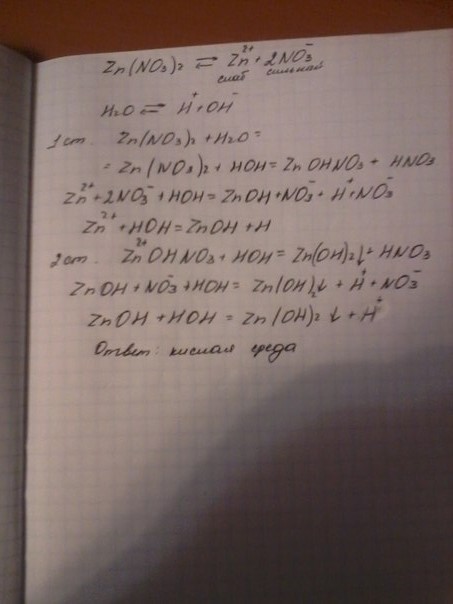 Zn(NO3)2 ⇄ Zn²⁺ + 2NO3⁻
слаб сильная
H2O ⇄ H⁺ + OH⁻
1 ст. Zn(NO3)2 + H2O =
= Zn(NO3)2 + HOH = ZnOHNO3 + HNO3
Zn²⁺ + 2NO3⁻ + HOH = ZnOH + NO3⁻ + H⁺ + NO3⁻
Zn²⁺ + HOH = ZnOH + H
2 ст. Zn²⁺OHNO3 + HOH = Zn(OH)2↓ + HNO3
ZnOH + NO3⁻ + HOH = Zn(OH)2↓ + H⁺ + NO3⁻
ZnOH + HOH = Zn(OH)2↓ + H⁺
Ответ: кислая среда